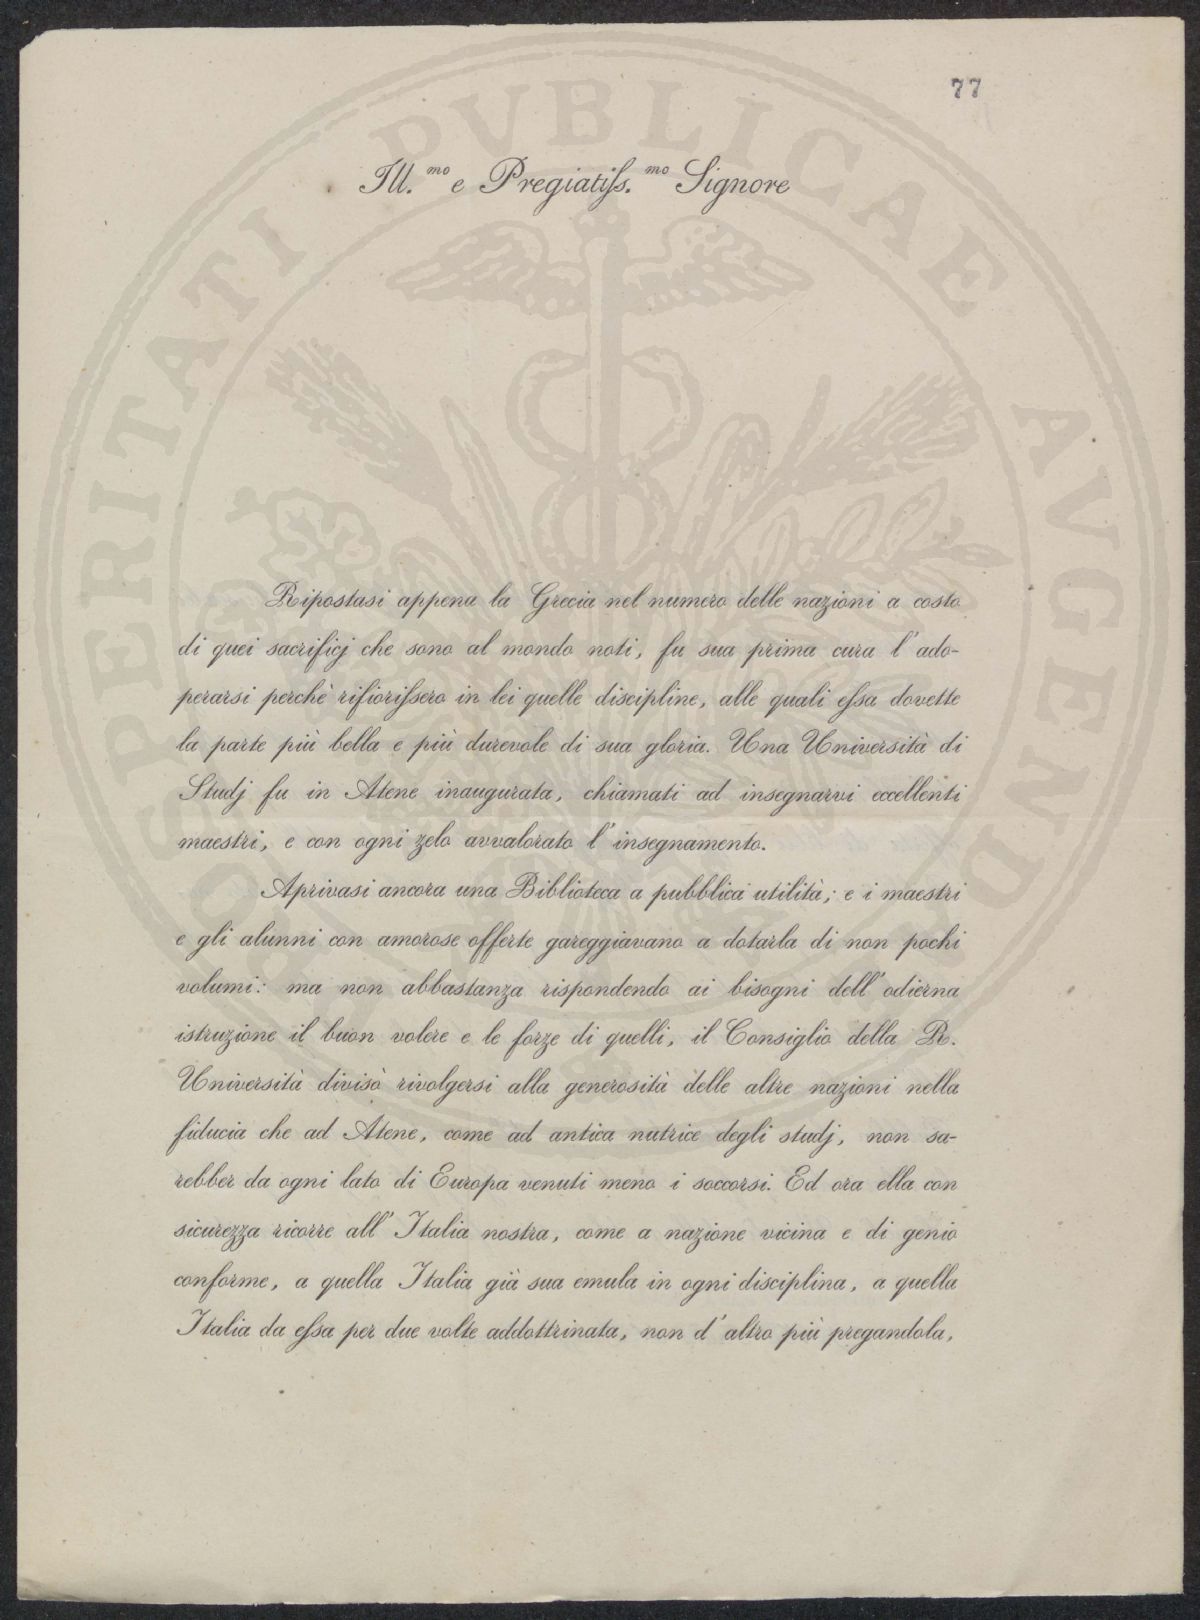 77
Ill.mo e Pregiatiſs.mo Signore
Ripostasi appena la Grecia nel numero delle nazioni a costo
di quei sacrificj che sono al mondo noti, fu sua prima cura l' ado-
perarsi perchè rifioriſsero in lei quelle discipline, alle quali eſsa dovette
la parte più bella e più durevole di sua gloria. Una Università di
Studj fu in Atene inaugurata, chiamati ad insegnarvi eccellenti
maestri, e con ogni zelo avvalorato l' insegnamento.
Aprivasi ancora una Biblioteca a pubblica utilità; e i maestri
e gli alunni con amorose offerte gareggiavano a dotarla di non pochi
volumi: ma non abbastanza rispondendo ai bisogni dell' odierna
istruzione il buon volere e le forze di quelli, il Consiglio della R.
Università divisò rivolgersi alla generosità delle altre nazioni nella
fiducia che ad Atene, come ad antica nutrice degli studj, non sa-
rebber da ogni lato di Europa venuti meno i soccorsi. Ed ora ella con
sicurezza ricorre all' Italia nostra, come a nazione vicina e di genio
conforme, a quella Italia già sua emula in ogni disciplina, a quella
Italia da eſsa per due volte addottrinata, non d' altro più pregandola,
PROSPERITATI PVBLICAE AVGENDAE